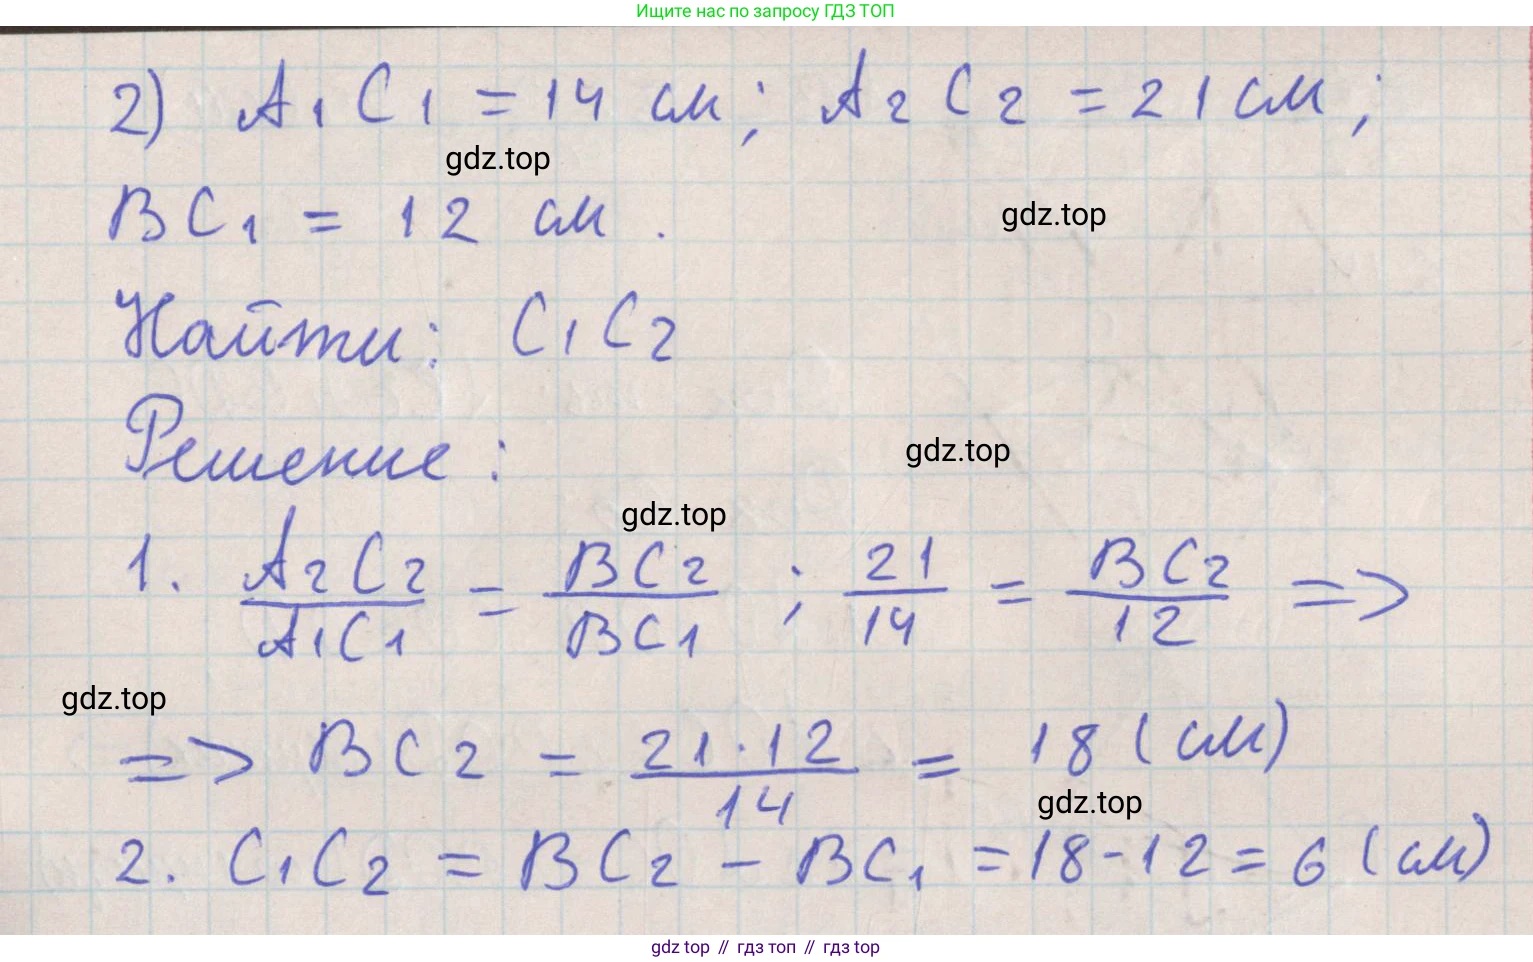 Ищите нас по запросу ГДЗ ТОП
2) A₁C₁ = 14 см; A₂C₂ = 21 см;
gdz.top
BC₁ = 12 см.
gdz.top
Найти: C₁C₂
Решение:
gdz.top
gdz.top
1. A₂C₂/A₁C₁ = BC₂/BC₁ ; 21/14 = BC₂/12 =>
gdz.top
=> BC₂ = 21·12/14 = 18 (см)
gdz.top
2. C₁C₂ = BC₂ - BC₁ = 18-12 = 6 (см)
gdz top // гдз топ // гдз.top